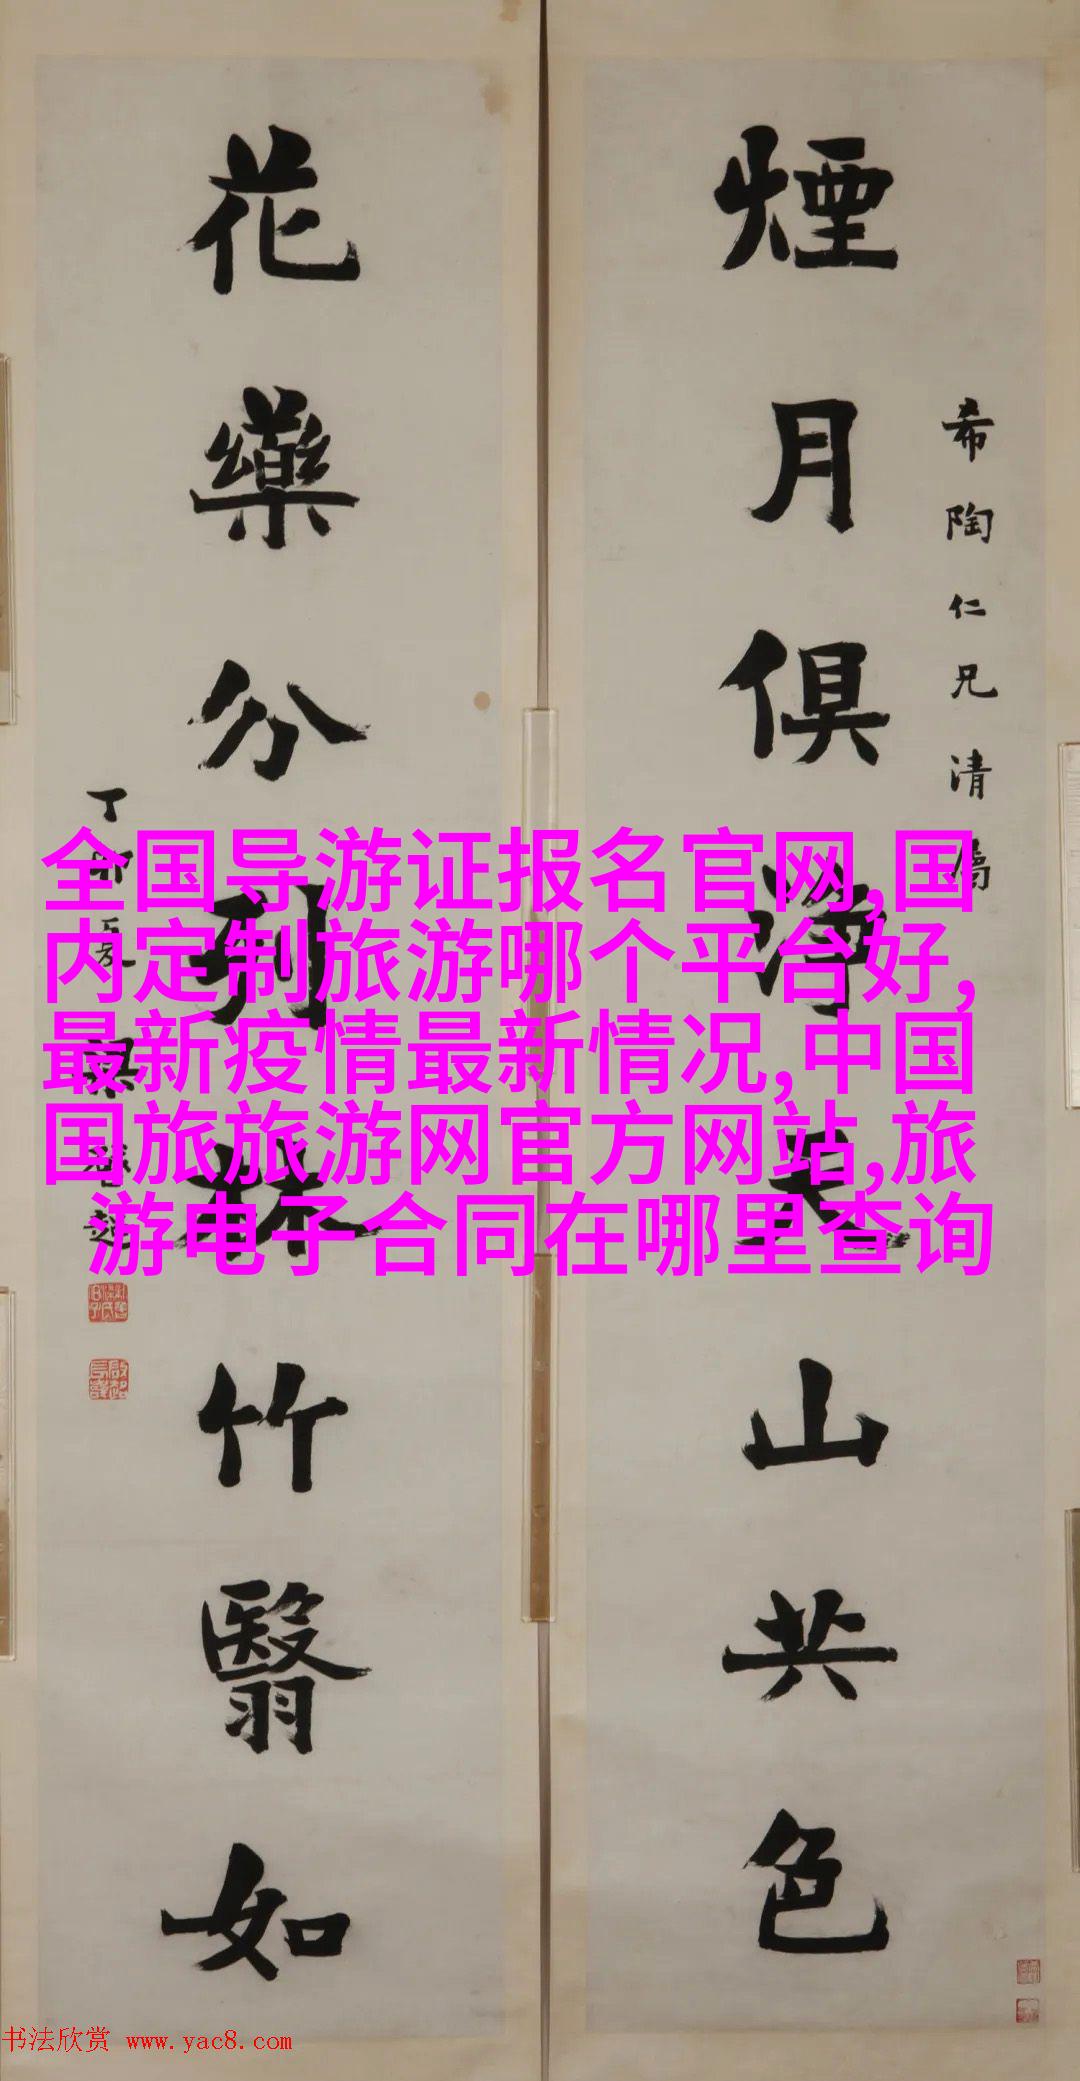 希陶仁兄清屬
煙月俱淨天山共色
花藥分列林竹翳如
丁卯 梁啟超
全国导游证报名官网,国
内定制旅游哪个平台好,
最新疫情最新情况,中国
国旅旅游网官方网站,旅
游电子合同在哪里查询
书法欣赏 www.yac8.com